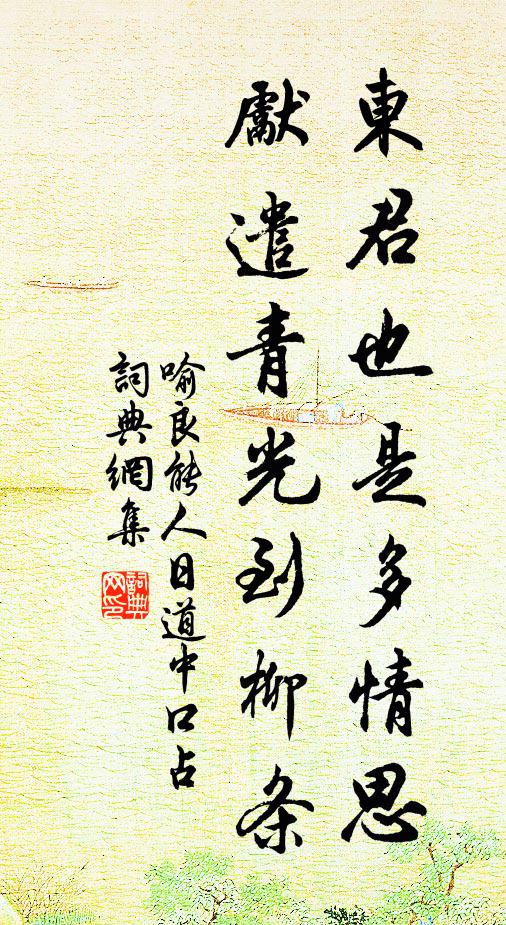 東君也是多情思
獻遣青光到柳条
喻良能人日道中口占
詞典網集
詞典
网印